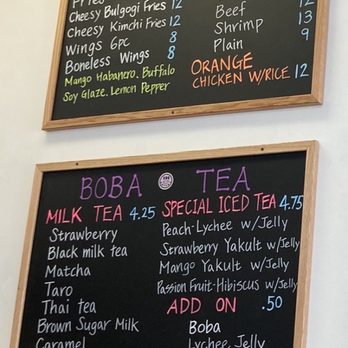 Fries 12
Cheesy Bulgogi Fries 12
Cheesy Kimchi Fries 12
Wings 6pc 8
Boneless Wings 8
Mango Habanero, Buffalo
Soy Glaze, Lemon Pepper
Beef 12
Shrimp 13
Plain 9
ORANGE
CHICKEN W/RICE 12
BOBA TEA
MILK TEA 4.25
Strawberry
Black milk tea
Matcha
Taro
Thai tea
Brown Sugar Milk
Caramel
SPECIAL ICED TEA 4.75
Peach-Lychee w/Jelly
Strawberry Yakult w/Jelly
Mango Yakult w/Jelly
Passion Fruit-Hibiscus w/Jelly
ADD ON .50
Boba
Lychee Jelly